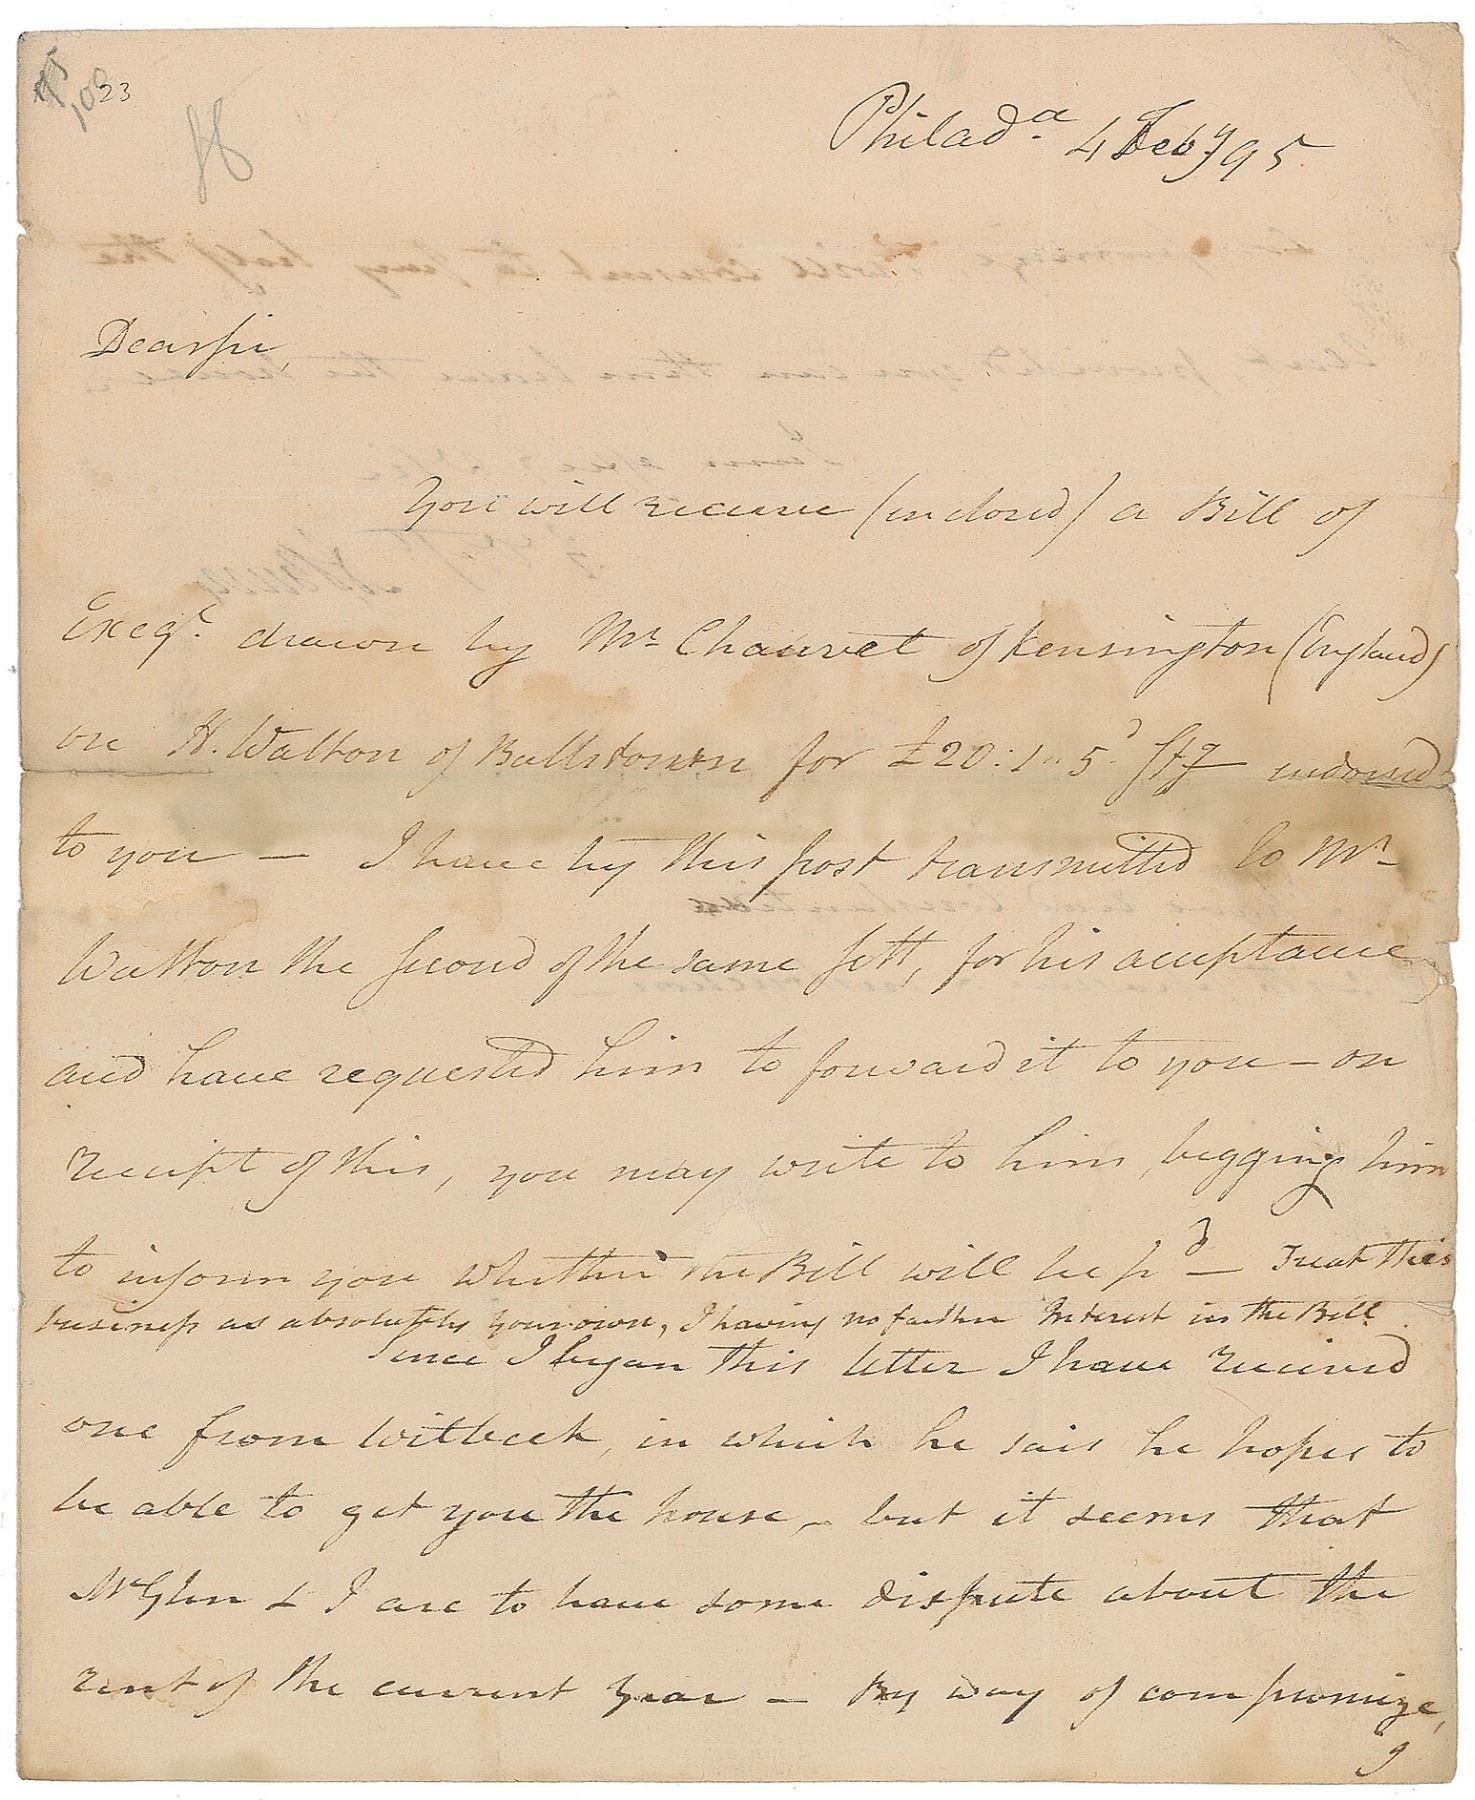 23
Philad.a 4 Feby 95
Dear sir,
You will receive (inclosed) a Bill of
Excg.e drawn by Mr Chauvet of Kensington (England)
on H. Walton of Ballstown for £20:1..5d Stg indorsed
to you — I have by this post transmitted to Mr
Walton the second of the same sett, for his acceptance
and have requested him to forward it to you — on
receipt of this, you may write to him, begging him
to inform you whether the Bill will be pd — Treat this
business as absolutely your own, I having no farther Interest in the Bill.
Since I began this letter I have received
one from Witbeck, in which he sais he hopes to
be able to get you the house, — but it seems that
Mr Glen & I are to have some dispute about the
rent of the current year — By way of compromize,